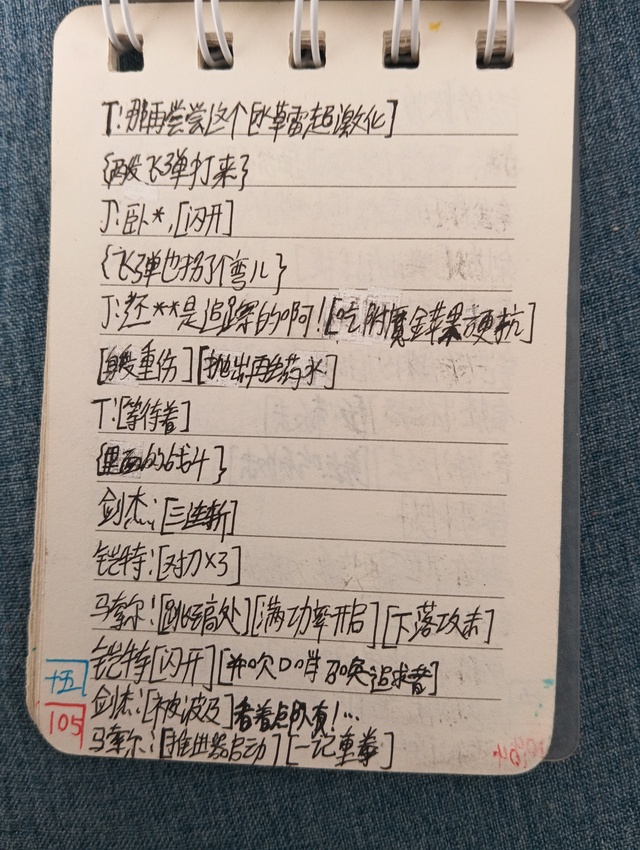 T:那再尝尝这个[水草雷超激化]
{飞弹打来}
J:卧*,[闪开]
{飞弹也拐了个弯儿}
J:还**是追踪的啊![吃附魔金苹果硬抗]
[身受重伤][抛出再生药水]
T:[等待着]
{里面的战斗}
剑杰:[三连斩]
铠特:[对刀×3]
马奎尔:[跳到高处][满功率开启][下落攻击]
铠特[闪开][并吹口哨召唤追求者]
剑杰:[被波及]看着点队友!…
马奎尔:[推进器启动][一记重拳]
十五
105